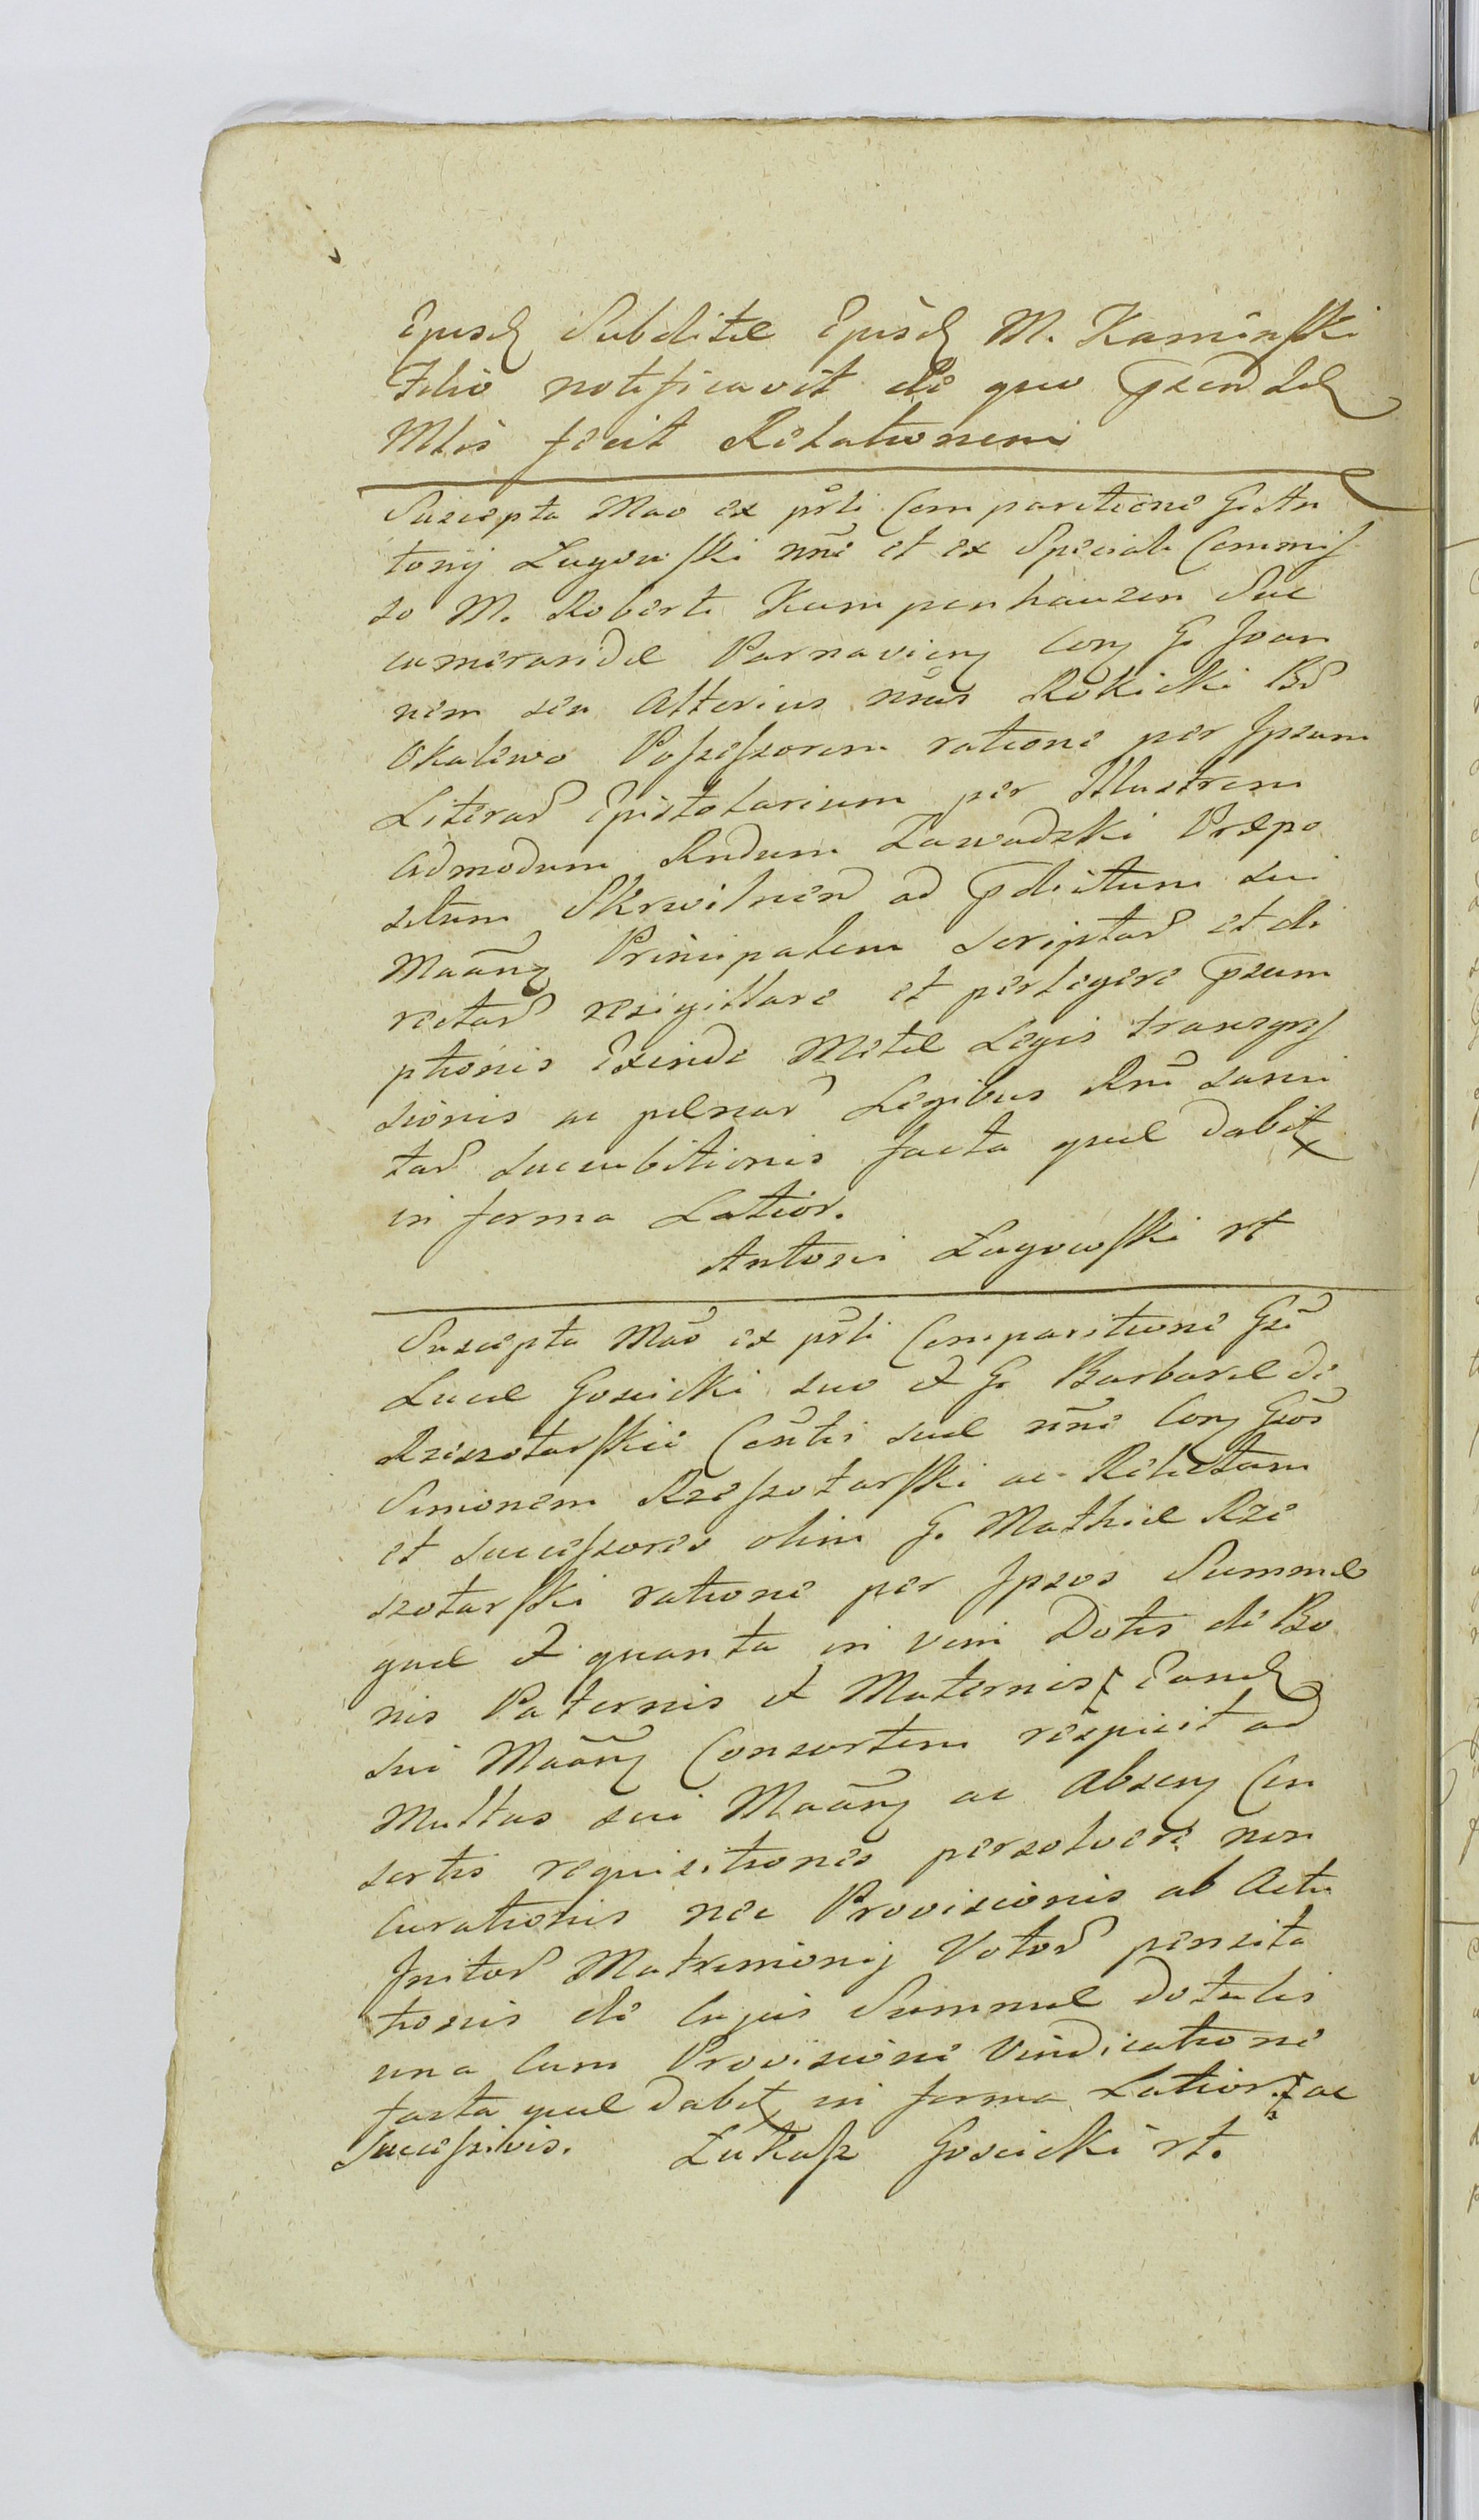 Ejusd Subditæ Ejusd M. Kaminski
Filio notificavit de quo Præns Id
Mtis fecit Relationem
Suscepta Mao ex prli Comparitione G. An
tonij Ługowski nne et ex Speciali Commis
so M. Roberti Kampenhauzen Suc
camerandæ Parnavien con G. Joan
nem seu alterius nnis Rokicki Bd
Okalewo Possessorem ratione per Ipsum
Literar Epistolarium per Illustrem
admodum Rndum Zawadzki Præpo
situm Skrwilnen ad Pdictum sui
Maan Principalem scriptar et di
rectar resigillare et perlegere Præsum
ptionis Exinde Metæ Legis transgres
sionis ac pœnar Legibus Rni sanci
tar succubitionis facta quæ dabit
in forma Latior.
Antoni Ługowski rt
Suscepta Mao ex prli Comparitione Gsi
Lucæ Gosicki suo et G. Barbaræ de
Rzeszotarskie Contis suæ nne con Gsos
Simonem Rzeszotarski ac Relictam
et Successores olim G. Mathiæ Rze
szotarski ratione per Ipsos Summæ
quæ et quanta in vim Dotis de Bo
nis Paternis et Maternis Eand
sui Maan Consortem respicit ad
Multas sui Maan ac absen Con
sortis requisitiones persolvere non
curationis nec Provisionis ab Actu
Initor Matrimonij Votor pensita
tionis de cujus Summæ dotalis
una cum Provisione Vindicatione
facta quæ dabit in forma Latior. ac
Successivis. Łukasz Gosicki rt.